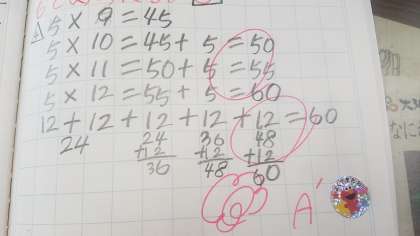 5 × 9 = 45
5 × 10 = 45 + 5 = 50
5 × 11 = 50 + 5 = 55
5 × 12 = 55 + 5 = 60
12 + 12 + 12 + 12 + 12 = 60
24 24 36 48
+12 +12 +12
36 48 60
A'